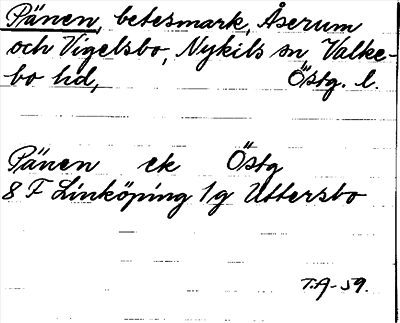 Pänen, betesmark, Åserum
och Vigelsbo, Nykils sn, Valke-
bo hd, Östg. l.
Pänen ek Östg
8 F Linköping 1g Uttersbo
T.A-59.